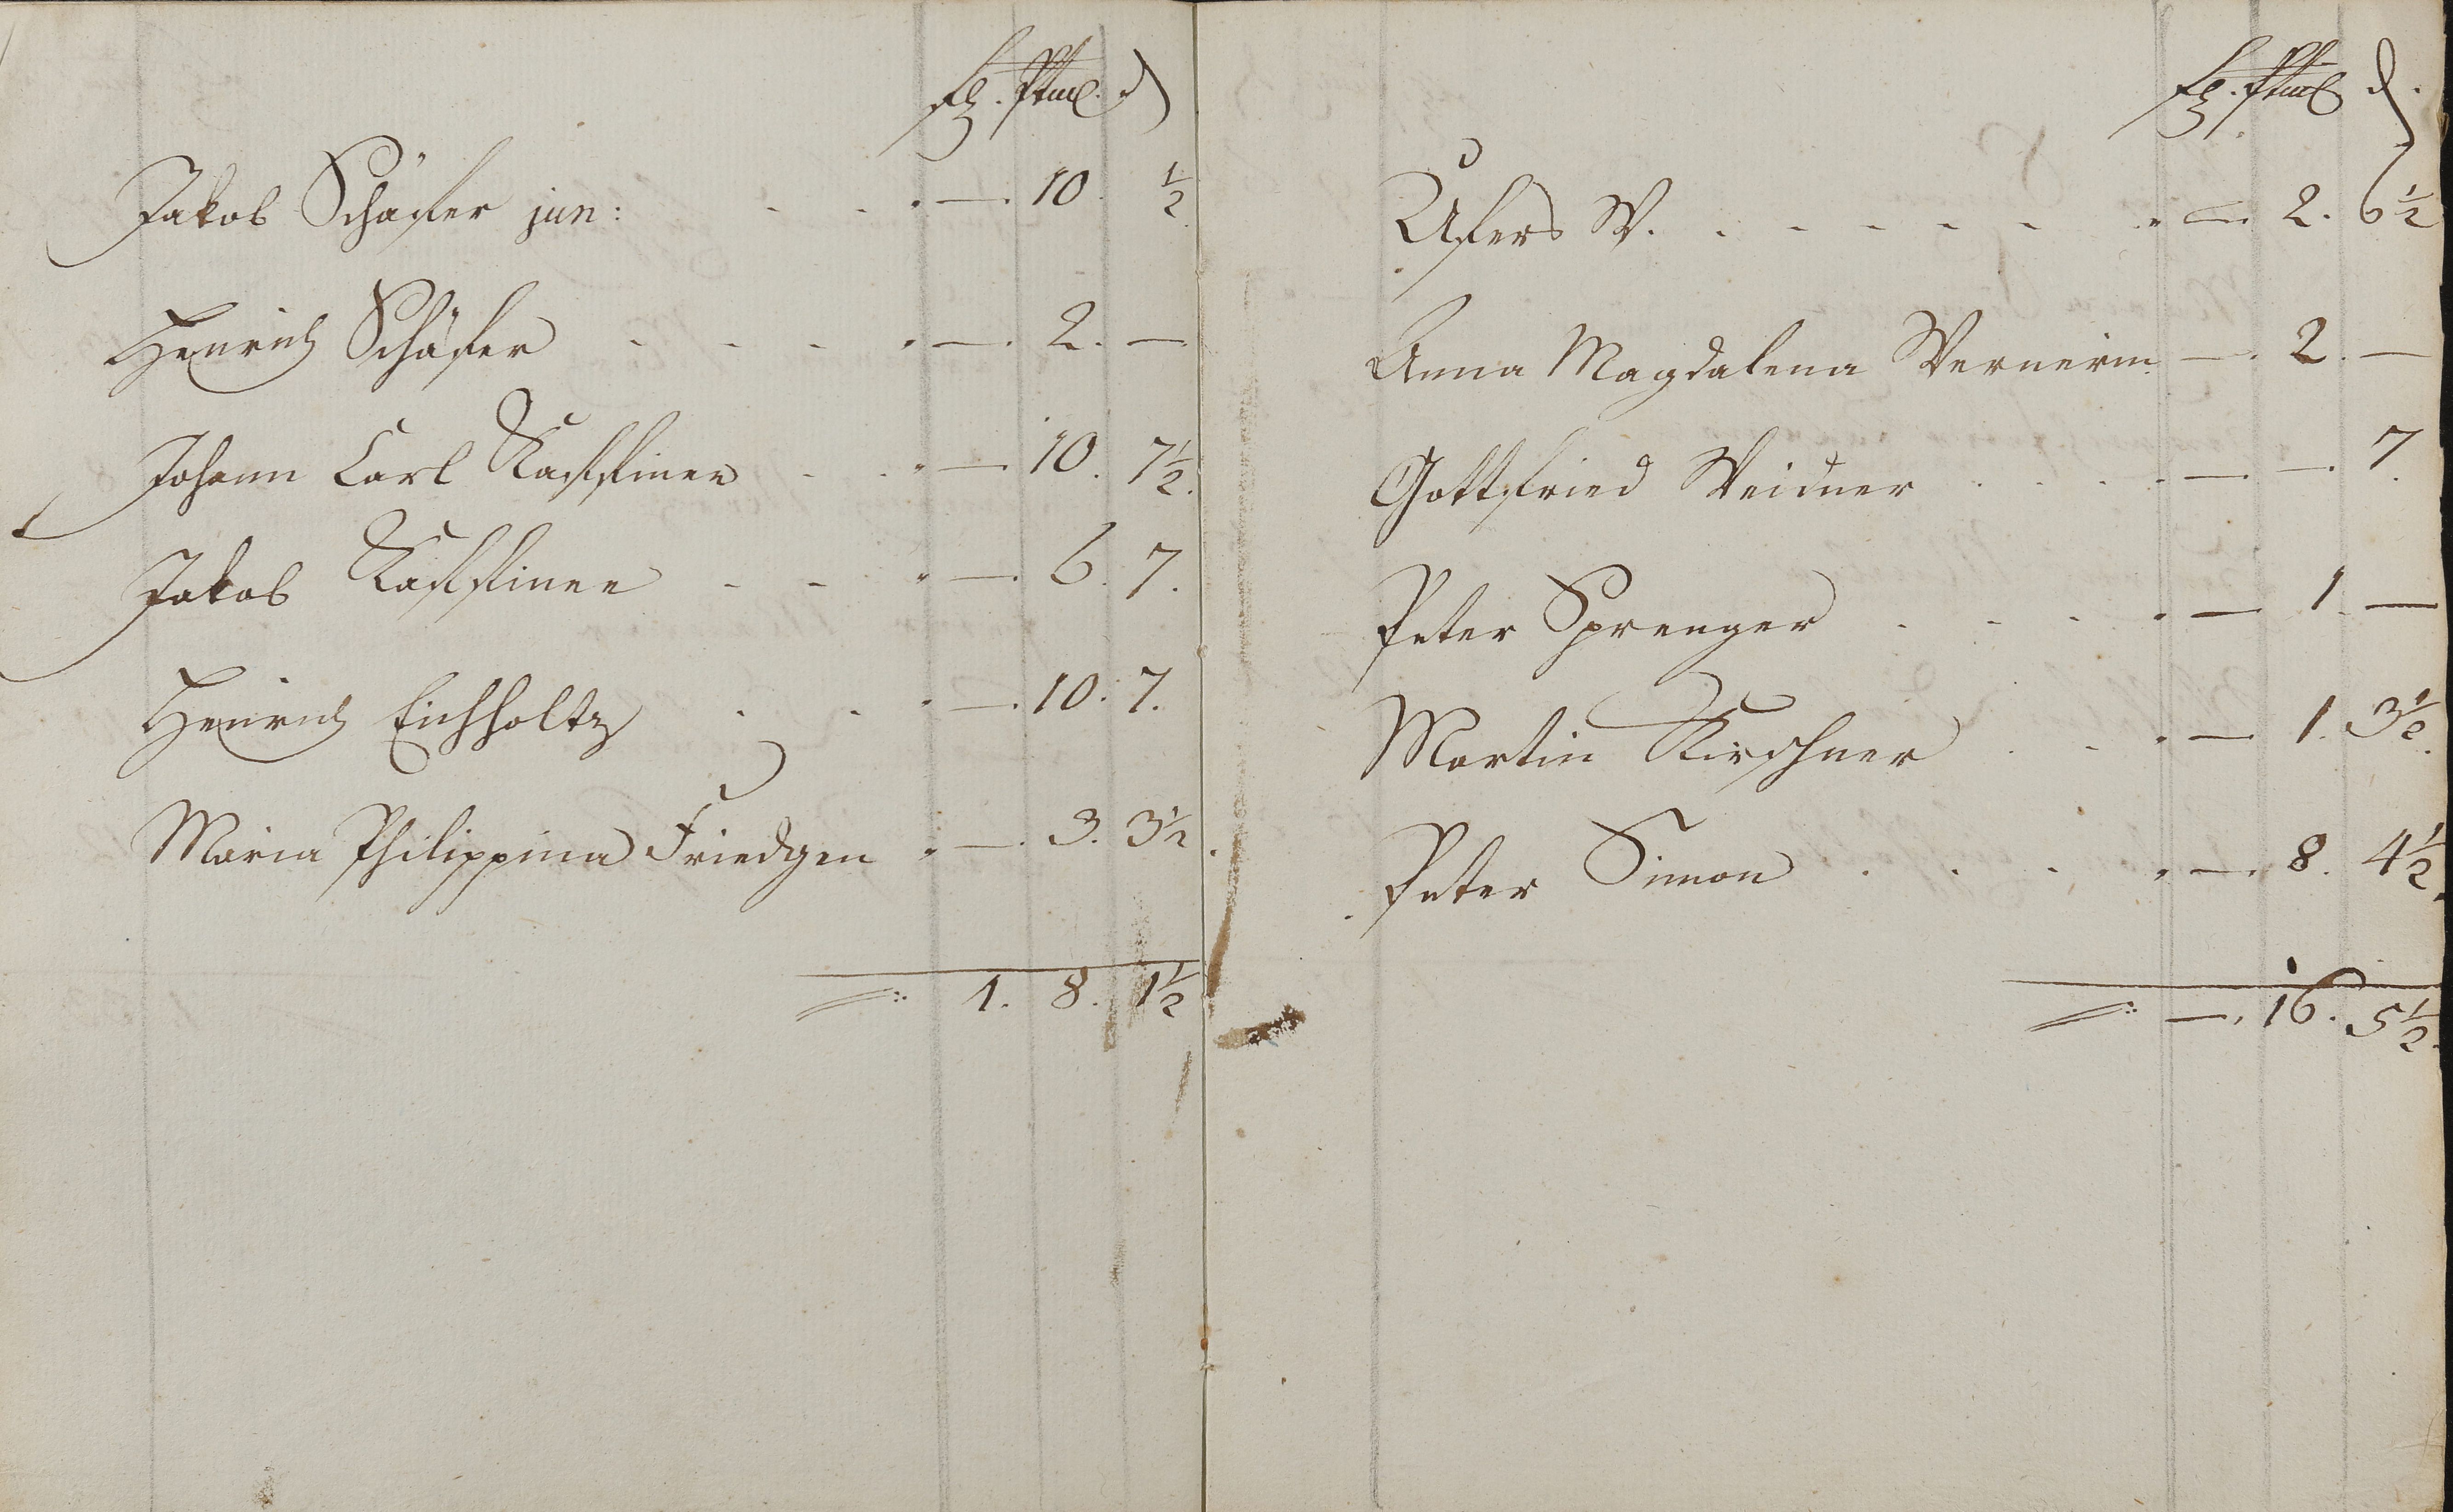 Jakob Schäfer jun: . . . — . 10. ½
Henrich Schäfer . . . . — . 2. —
Johann Carl Kastfiner . . . — . 10. 7½.
Jakob Kastfiner . . . — . 6. 7.
Henrich Eichholtz . . . — . 10. 7.
Maria Philippina Friedgen . — . 3. 3½.
1. 8. 1½
Ufers W. . . . . . . — 2. 6½
Anna Magdalena Wernerin — . 2. —
Gottfried Weidner . . . . — — . 7.
Peter Sprenger . . . . — 1. —
Martin Kirschner . . . — 1. 3½.
Peter Simon . . . . — . 8. 4½.
— . 16. 5½.